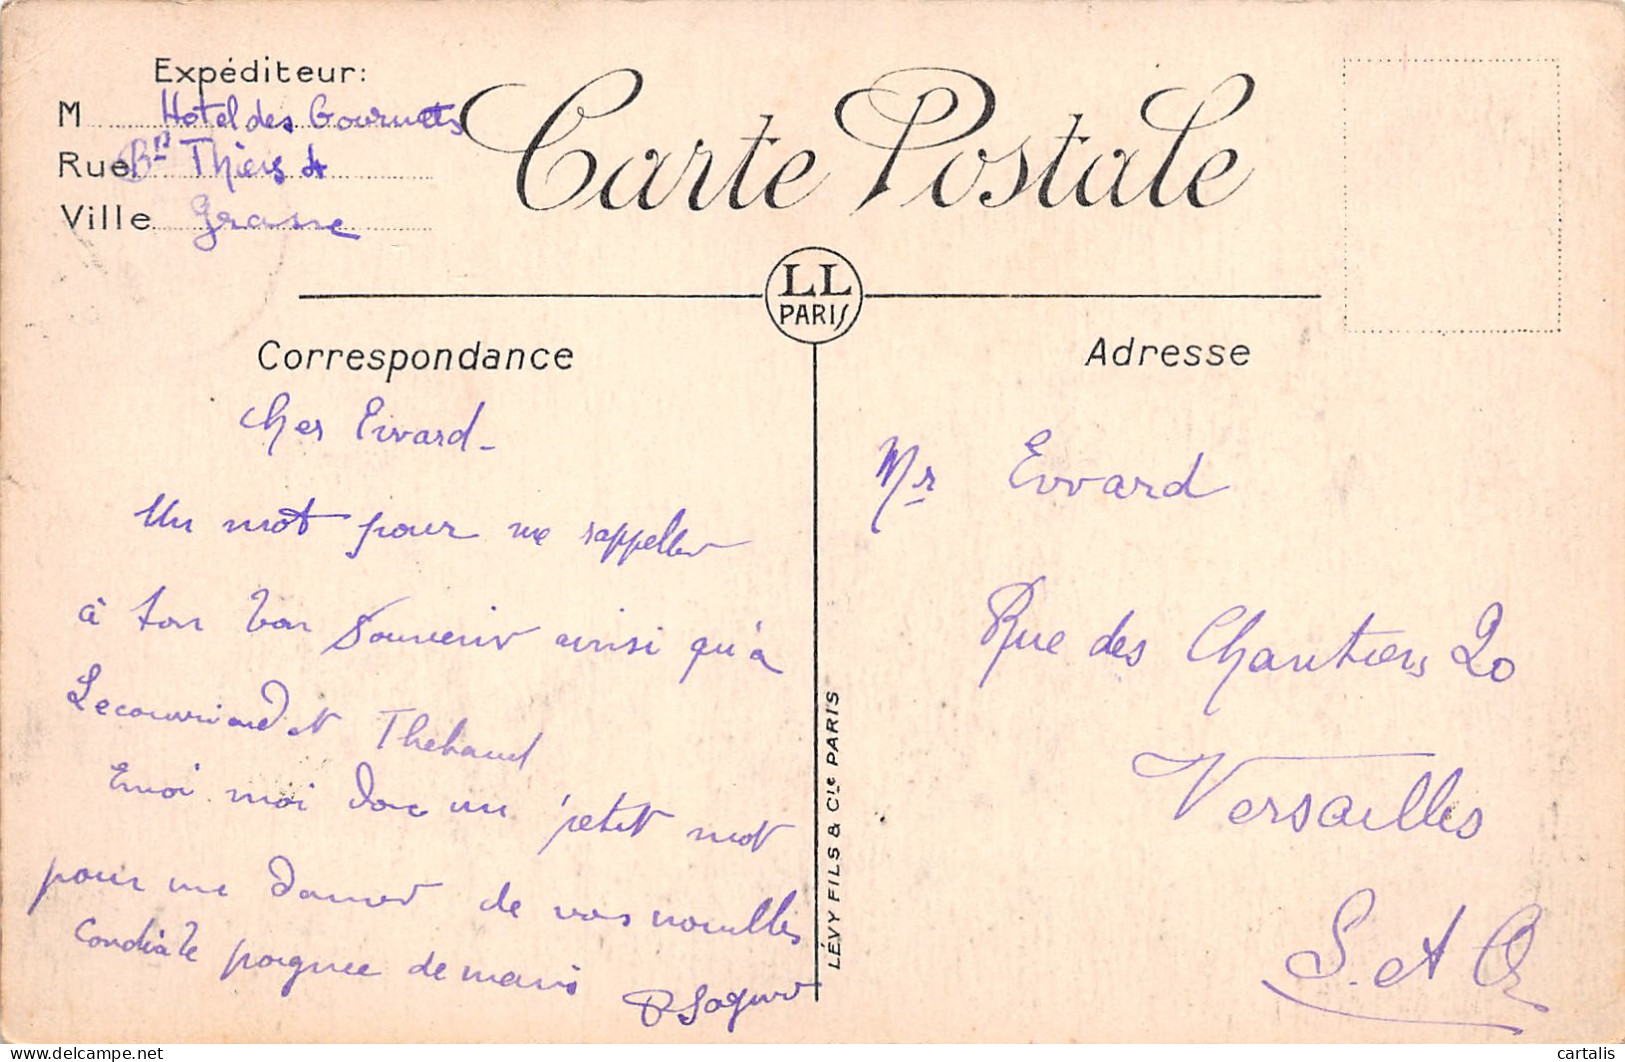 Expéditeur:
M Hotel des Gourmets
Rue Bd Thiers 4
Ville Grasse
Carte Postale
LL
PARIS
Correspondance
Adresse
Cher Evvard -
Un mot pour me rappeller
à ton bon Souvenir ainsi qu'à
et Thebaud
Envoi moi donc un petit mot
pour me donner de vos nouvelles
Cordiale poignee de main
Mr Evvard
Rue des Chantiers 20
Versailles
S. et O
LÉVY FILS & Cie PARIS
cartalis